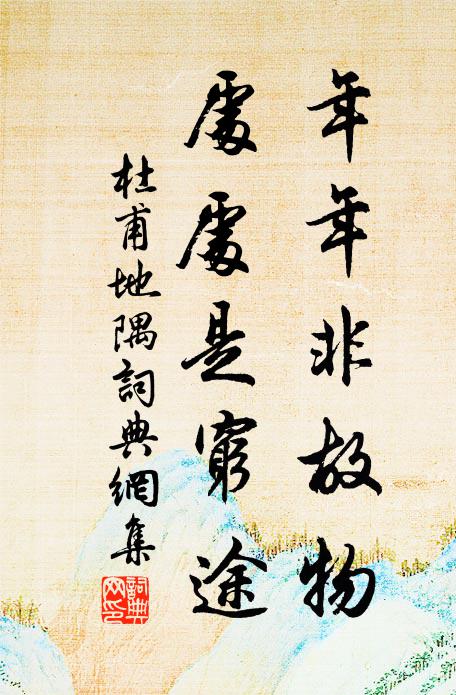 年年非故物
處處是窮途
杜甫地隅詞典網集
詞典